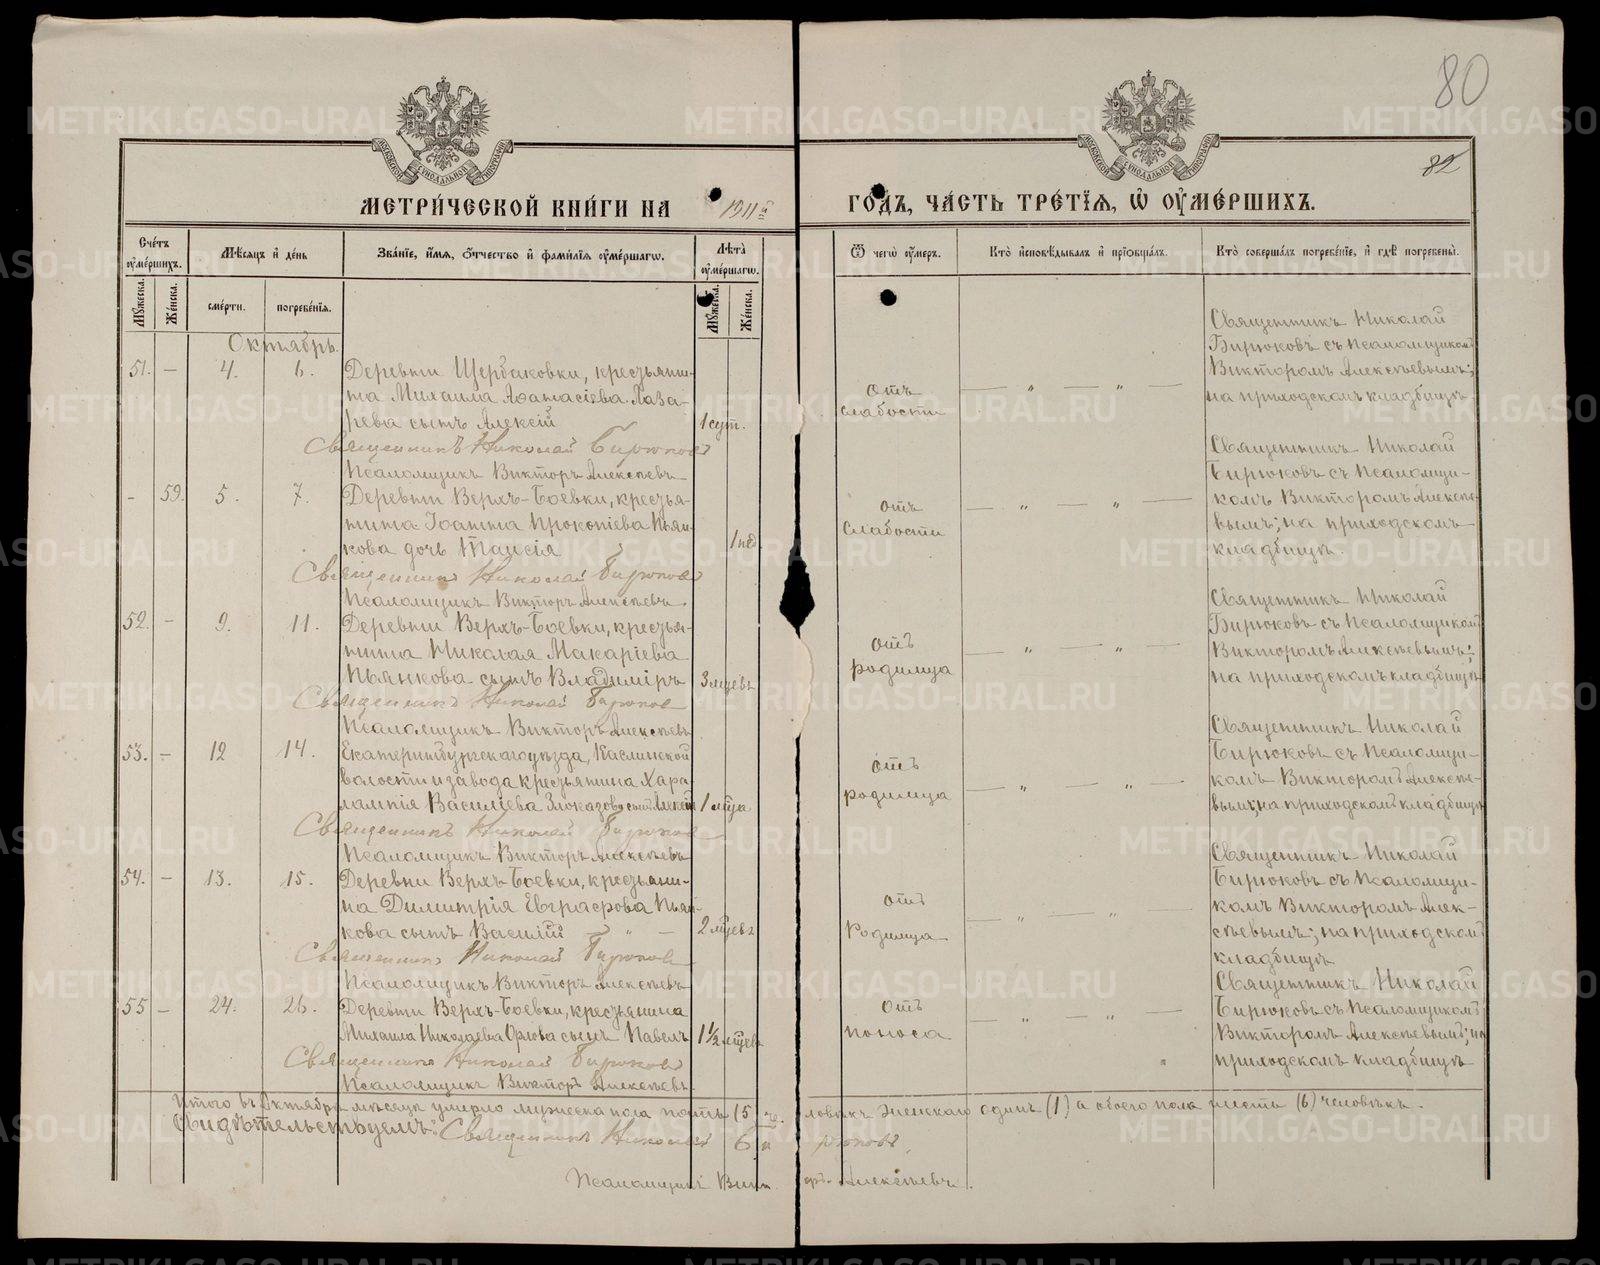 80
82
МОСКОВСКОЙ СУНОДАЛЬНОЙ ТИПОГРАФІИ
МОСКОВСКОЙ СУНОДАЛЬНОЙ ТИПОГРАФІИ
МЕТРИ́ЧЕСКОЙ КНИ́ГИ НА 1911й ГО́ДЪ, ЧА́СТЬ ТРЕ́ТІѦ, Ѡ ОУМЕ́РШИХЪ.
Сче́тъ оуме́ршихъ.
Мужеска.
Же́нска.
Мѣ́сяцъ и҆ де́нь
сме́рти.
погребе́нїѧ.
Зва́нїе, и҆́мѧ, ѻ҆́тчество и҆ фами́лїѧ оуме́ршагѡ.
Лѣта̀ оуме́ршагѡ.
Мужеска.
Же́нска.
Ѿ чегѡ̀ оу́меръ.
Кто̀ и҆сповѣ́дывалъ и҆ прїѡбща́лъ.
Кто̀ соверша́лъ погребе́нїе, и҆ гдѣ̀ погребены̀.
Октябрь.
51. — 4. 6.
Деревни Щербаковки, крестьяни-
на Михаила Афанасіева Лаза-
рева сынъ Алексій
1 сут.
отъ
слабости
— " — " —
Священникъ Николай
Бирюковъ съ Псаломщикомъ
Викторомъ Алексѣевымъ;
на приходскомъ кладбищѣ
Священникъ Николай Бирюковъ
Псаломщикъ Викторъ Алексѣевъ
- 59. 5. 7.
Деревни Верхъ-Боевки, крестья-
нина Іоанна Прокопіева Пьян-
кова дочь Таисія
1 нед.
отъ
слабости
— " — " —
Священникъ Николай
Бирюковъ съ Псаломщи-
комъ Викторомъ Алексѣе-
вымъ; на приходскомъ
кладбищѣ.
Священникъ Николай Бирюковъ
Псаломщикъ Викторъ Алексѣевъ.
52. — 9. 11.
Деревни Верхъ-Боевки, крестья-
нина Николая Макаріева
Пьянкова сынъ Владиміръ
3 мцевъ
отъ
родимца
— " — " —
Священникъ Николай
Бирюковъ съ Псаломщикомъ
Викторомъ Алексѣевымъ;
на приходскомъ кладбищѣ
Священникъ Николай Бирюковъ
Псаломщикъ Викторъ Алексѣевъ
53. — 12 14.
Екатеринбургскаго уѣзда, Каслинской
волости и завода крестьянина Хара-
лампія Василіева Злоказова сынъ Алексій
1 мца
отъ
родимца
— " — " —
Священникъ Николай
Бирюковъ съ Псаломщи-
комъ Викторомъ Алексѣе-
вымъ; на приходскомъ кладбищѣ
Священникъ Николай Бирюковъ
Псаломщикъ Викторъ Алексѣевъ
54. — 13. 15.
Деревни Верхъ-Боевки, крестьяни-
на Димитрія Евграфова Пьян-
кова сынъ Василій — " —
2 мцевъ
отъ
Родимца
— " — " —
Священникъ Николай
Бирюковъ съ Псаломщи-
комъ Викторомъ Алек-
сѣевымъ; на приходскомъ
кладбищѣ
Священникъ Николай Бирюковъ
Псаломщикъ Викторъ Алексѣевъ
55 — 24. 26.
Деревни Верхъ-Боевки, крестьянина
Михаила Николаева Орлова сынъ Павелъ
1 ½ мцевъ
отъ
поноса
— " — " —
Священникъ Николай
Бирюковъ съ Псаломщикомъ
Викторомъ Алексѣевымъ; на
приходскомъ кладбищѣ
Священникъ Николай Бирюковъ
Псаломщикъ Викторъ Алексѣевъ
Итого въ Октябрѣ мѣсяцѣ умерло мужеска пола пять (5 че ловѣкъ женскаго одинъ (1) а обоего пола шесть (6) человѣкъ.
Свидѣтельствуемъ: Священникъ Николай Би рюковъ,
Псаломщикъ Викт оръ Алексѣевъ.
METRIKI.GASO-URAL.RU